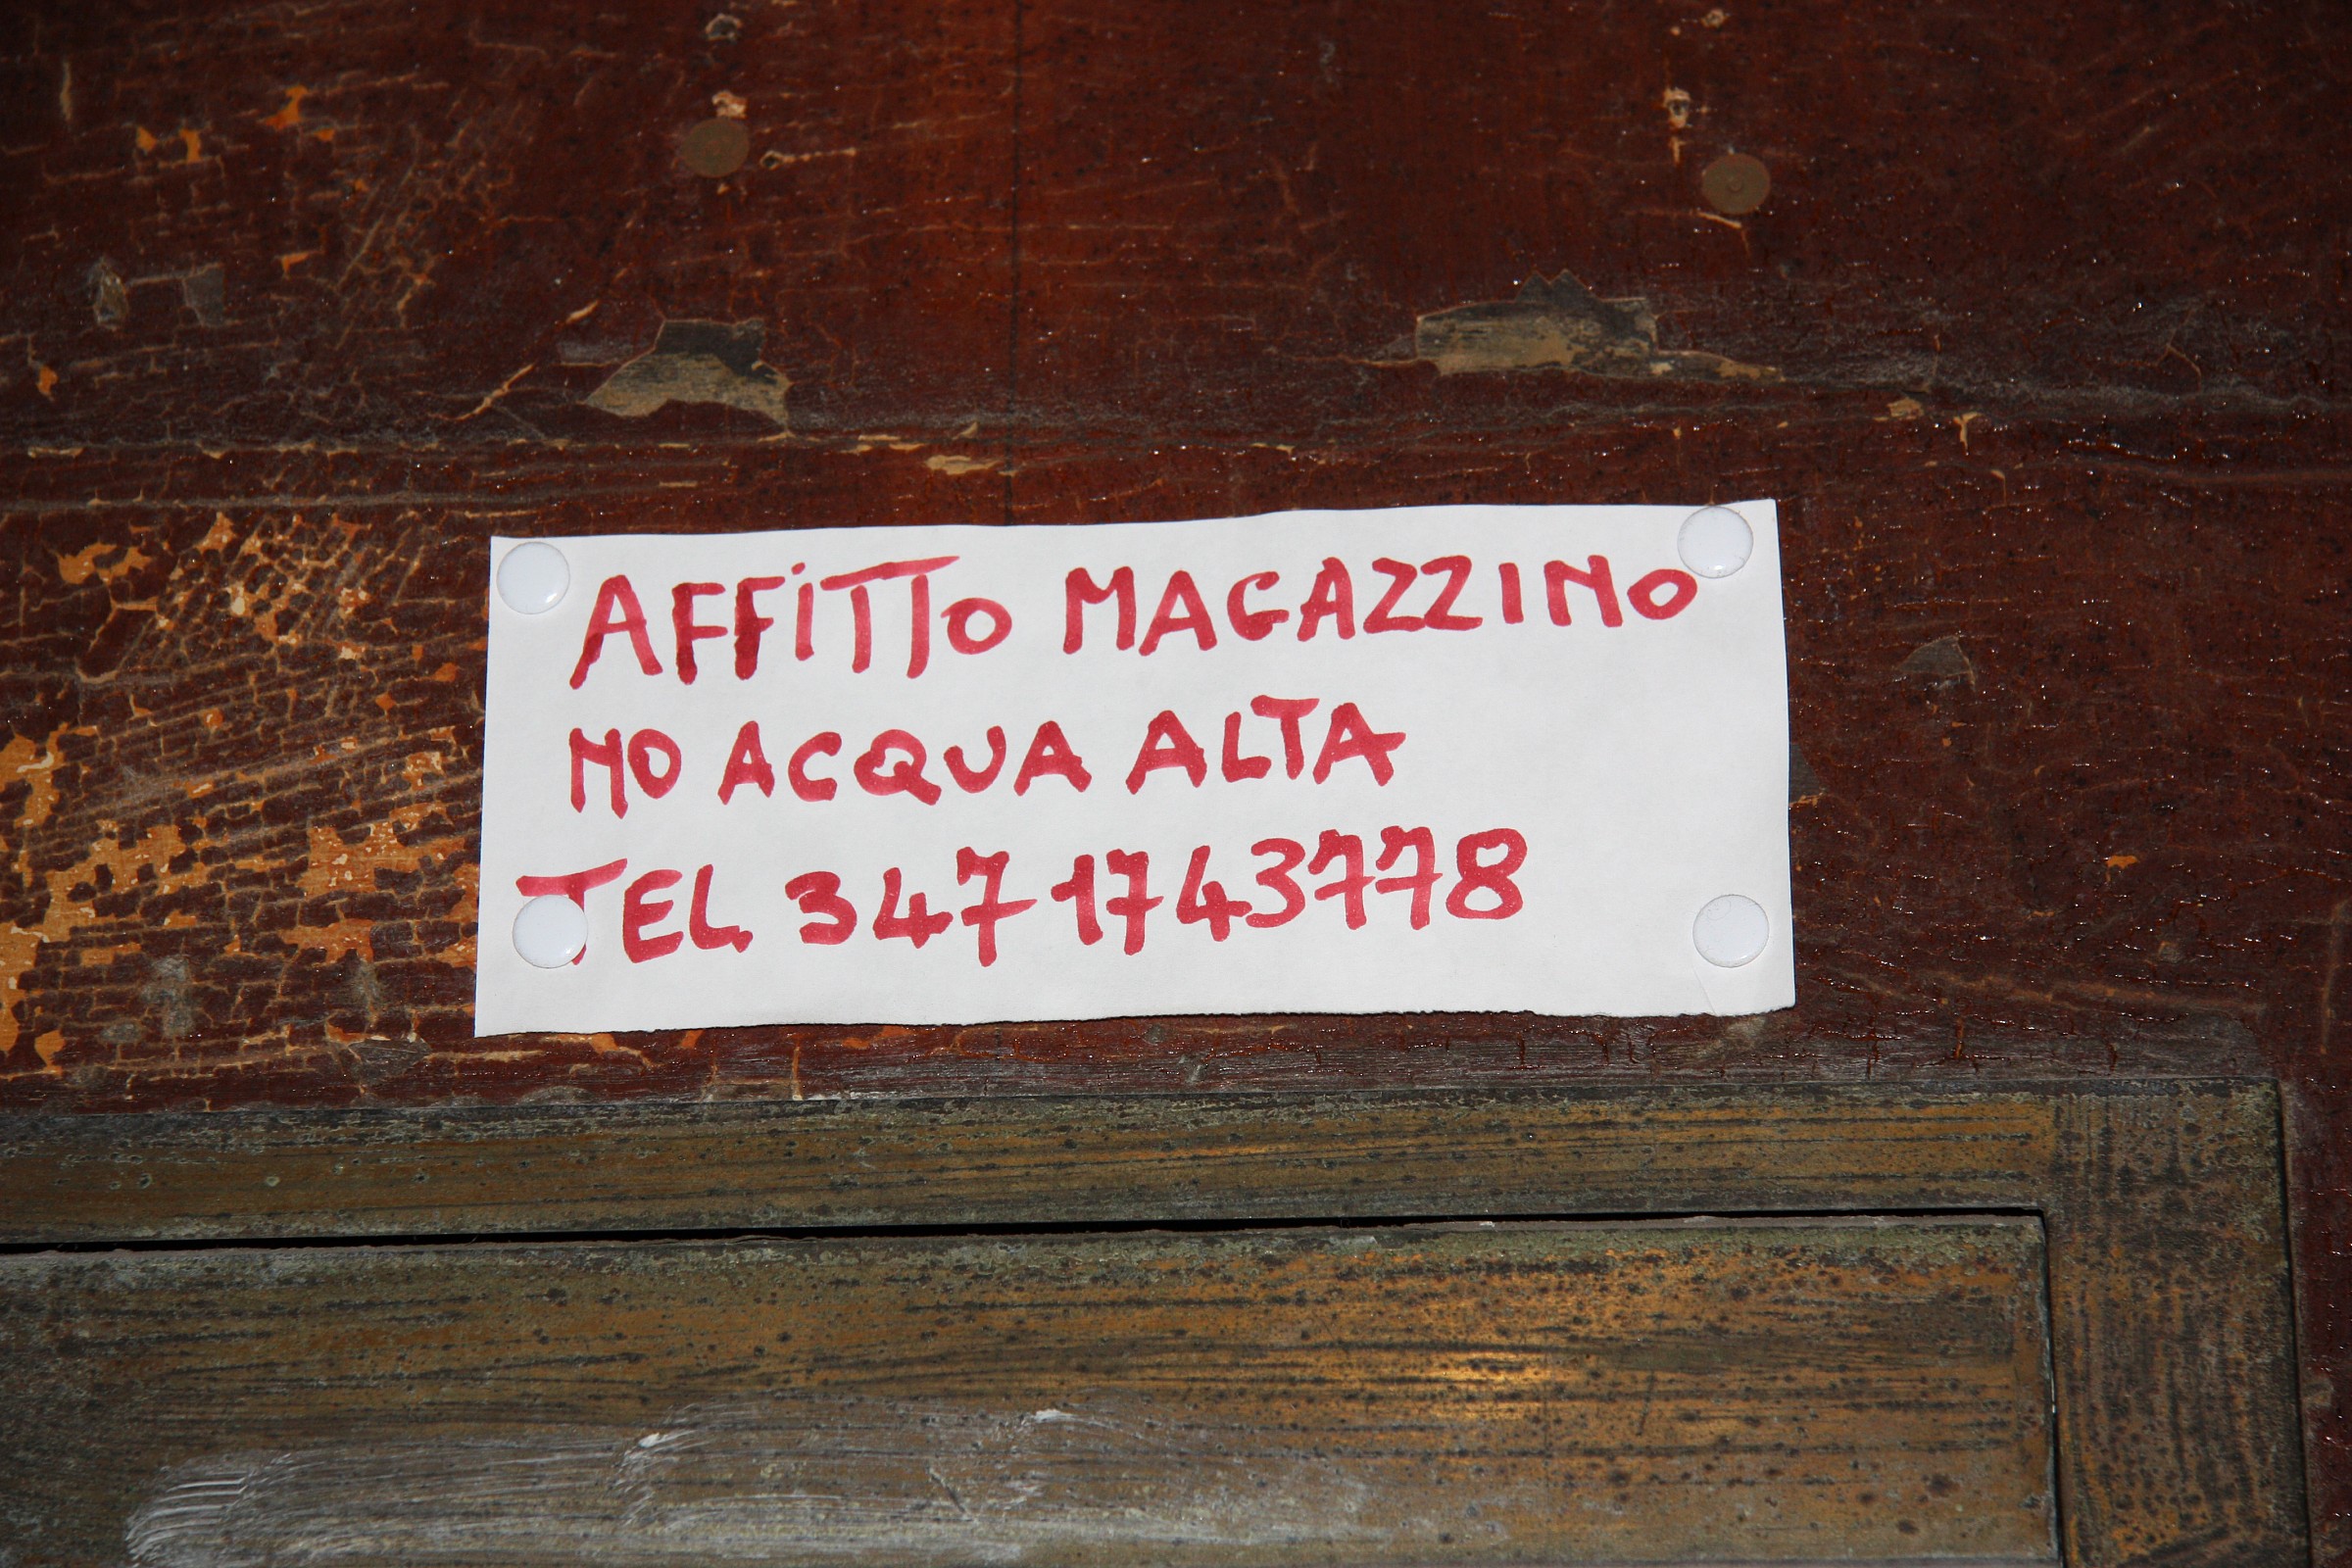 AFFiTTo MAGAZZINO
NO ACQUA ALTA
TEL. 347 1743778